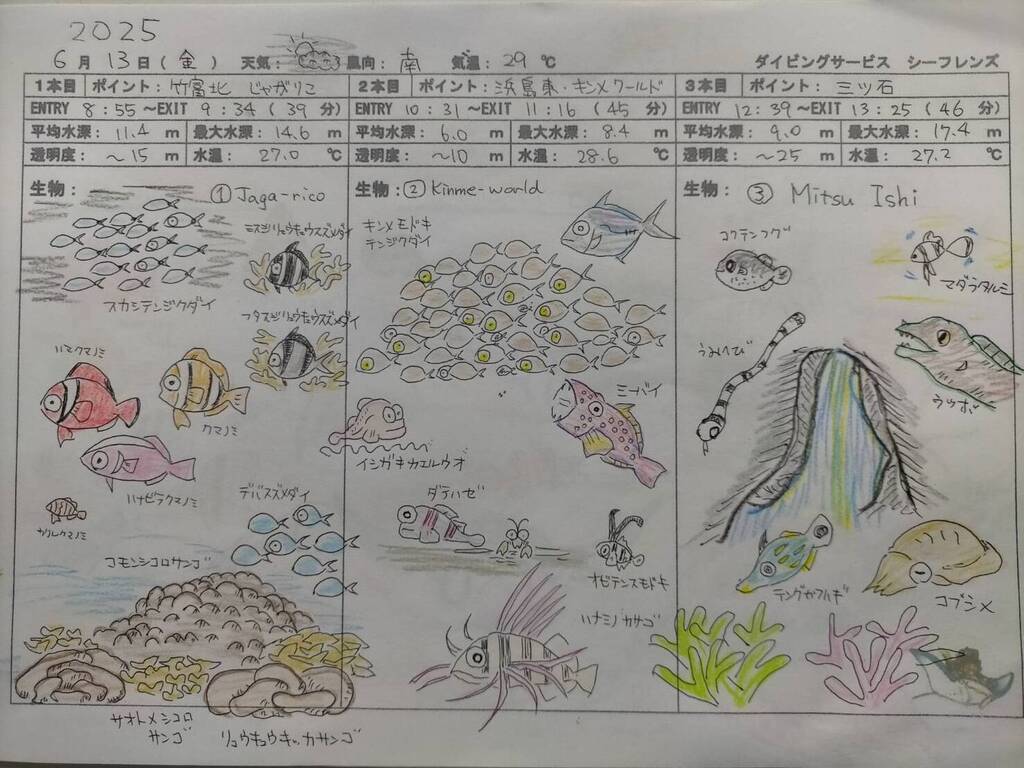 2025
6月 13日(金) 天気: 風向: 南 気温: 29 ℃ ダイビングサービス シーフレンズ
1本目 ポイント: 竹富北 じゃがりこ
ENTRY 8:55 ~EXIT 9:34 (39 分)
平均水深: 11.4 m 最大水深: 14.6 m
透明度: ~15 m 水温: 27.0 ℃
生物: ① Jaga-rico
ミスジリュウキュウスズメダイ
スカシテンジクダイ
フタスジリュウキュウスズメダイ
ハマクマノミ
クマノミ
ハナビラクマノミ
デバスズメダイ
カクレクマノミ
コモンシコロサンゴ
サオトメシコロ
サンゴ
リュウキュウキッカサンゴ
2本目 ポイント: 浜島東・キンメワールド
ENTRY 10:31 ~EXIT 11:16 (45 分)
平均水深: 6.0 m 最大水深: 8.4 m
透明度: ~10 m 水温: 28.6 ℃
生物: ② Kinme-world
キンメモドキ
テンジクダイ
ミーバイ
イシガキカエルウオ
ダテハゼ
ネビテンスモドキ
ハナミノカサゴ
3本目 ポイント: 三ツ石
ENTRY 12:39 ~EXIT 13:25 (46 分)
平均水深: 9.0 m 最大水深: 17.4 m
透明度: ~25 m 水温: 27.2 ℃
生物: ③ Mitsu Ishi
コクテンフグ
マダラタルミ
うみへび
ウツボ
テングカワハギ
コブシメ